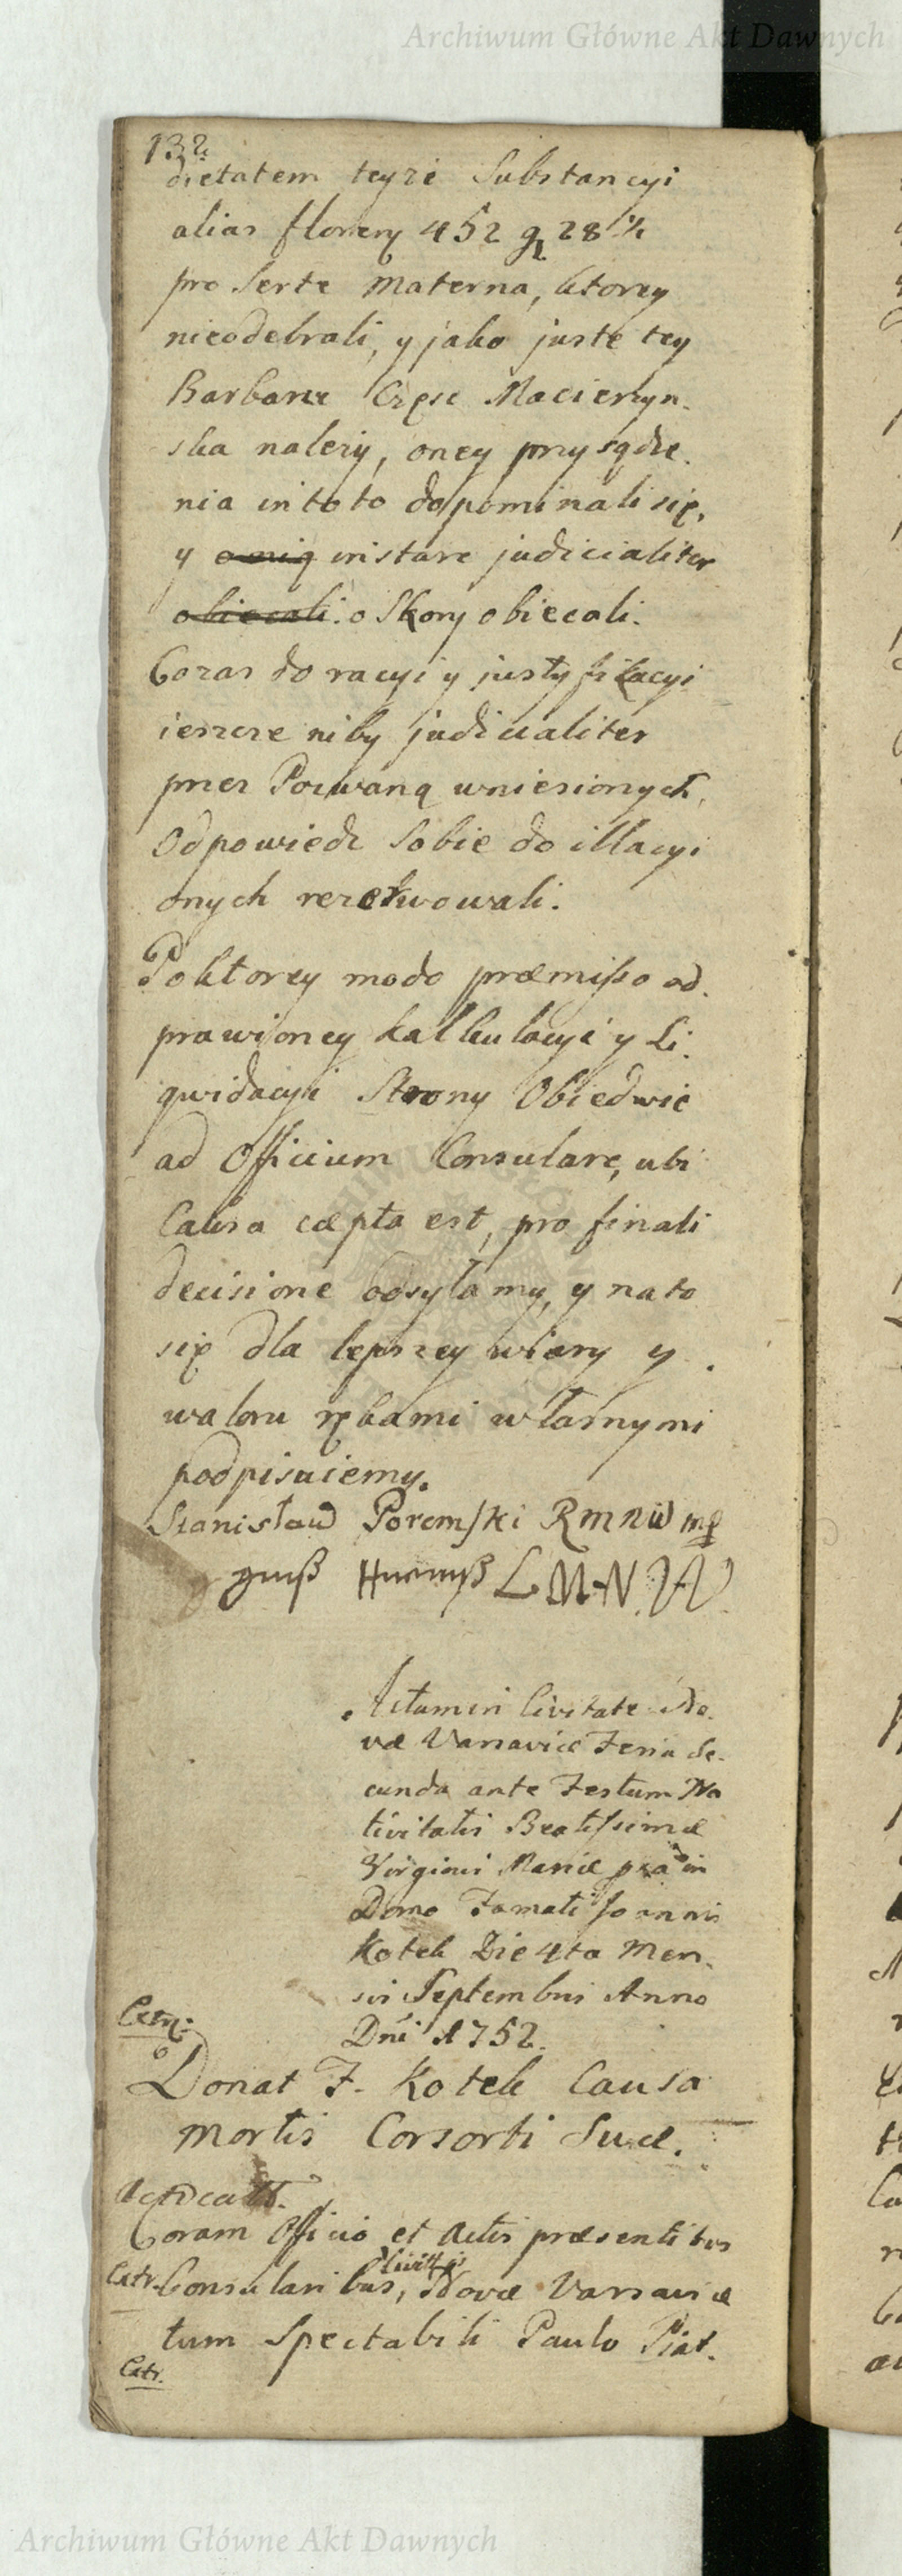 Archiwum Główne Akt Dawnych
132.
dietatem teyże Substancyi
alias floreny 452 g 28 1/2
pro Sorte Materna, ktorey
nieodebrali, y jako juste tey
Barbarze Częsc Macierzyn-
ska należy, oney przysądze-
nia in toto dopominali się,
y instare judicialiter
obiecali. o Skory obiecali.
Cozas do racyi y justyfikacyi
ieszcze niby judicialiter
przez Pozwaną wniesionych,
Odpowiedz Sobie do illacyi
onych rezerwowali.
Po ktorey modo præmisso od-
prawioney kalkulacyi y Li-
qwidacyi Strony Obiedwie
ad Officium Consulare, ubi
Causa cæpta est, pro finali
decisione odsyłamy, y na to
się dla lepszey wiary y
waloru rękami własnymi
podpisuiemy.
Stanisław Poremski R M N W mp
L M N W
Actum in Civitate No-
væ Varsaviæ Feria Se-
cunda ante Festum Na
tivitatis Beatissimæ
Virginis Mariæ in
Domo Famati Joannis
Kotek Die 4ta Men-
sis Septembris Anno
Dni 1752.
Extr:
Donat F. Kotek Causa
Mortis Consorti Suæ.
Coram Officio et Actis præsentibus
Extr. Consularibus, Civittis Novæ Varsaviæ
tum Spectabili Paulo Piat-
Extr.
Archiwum Główne Akt Dawnych